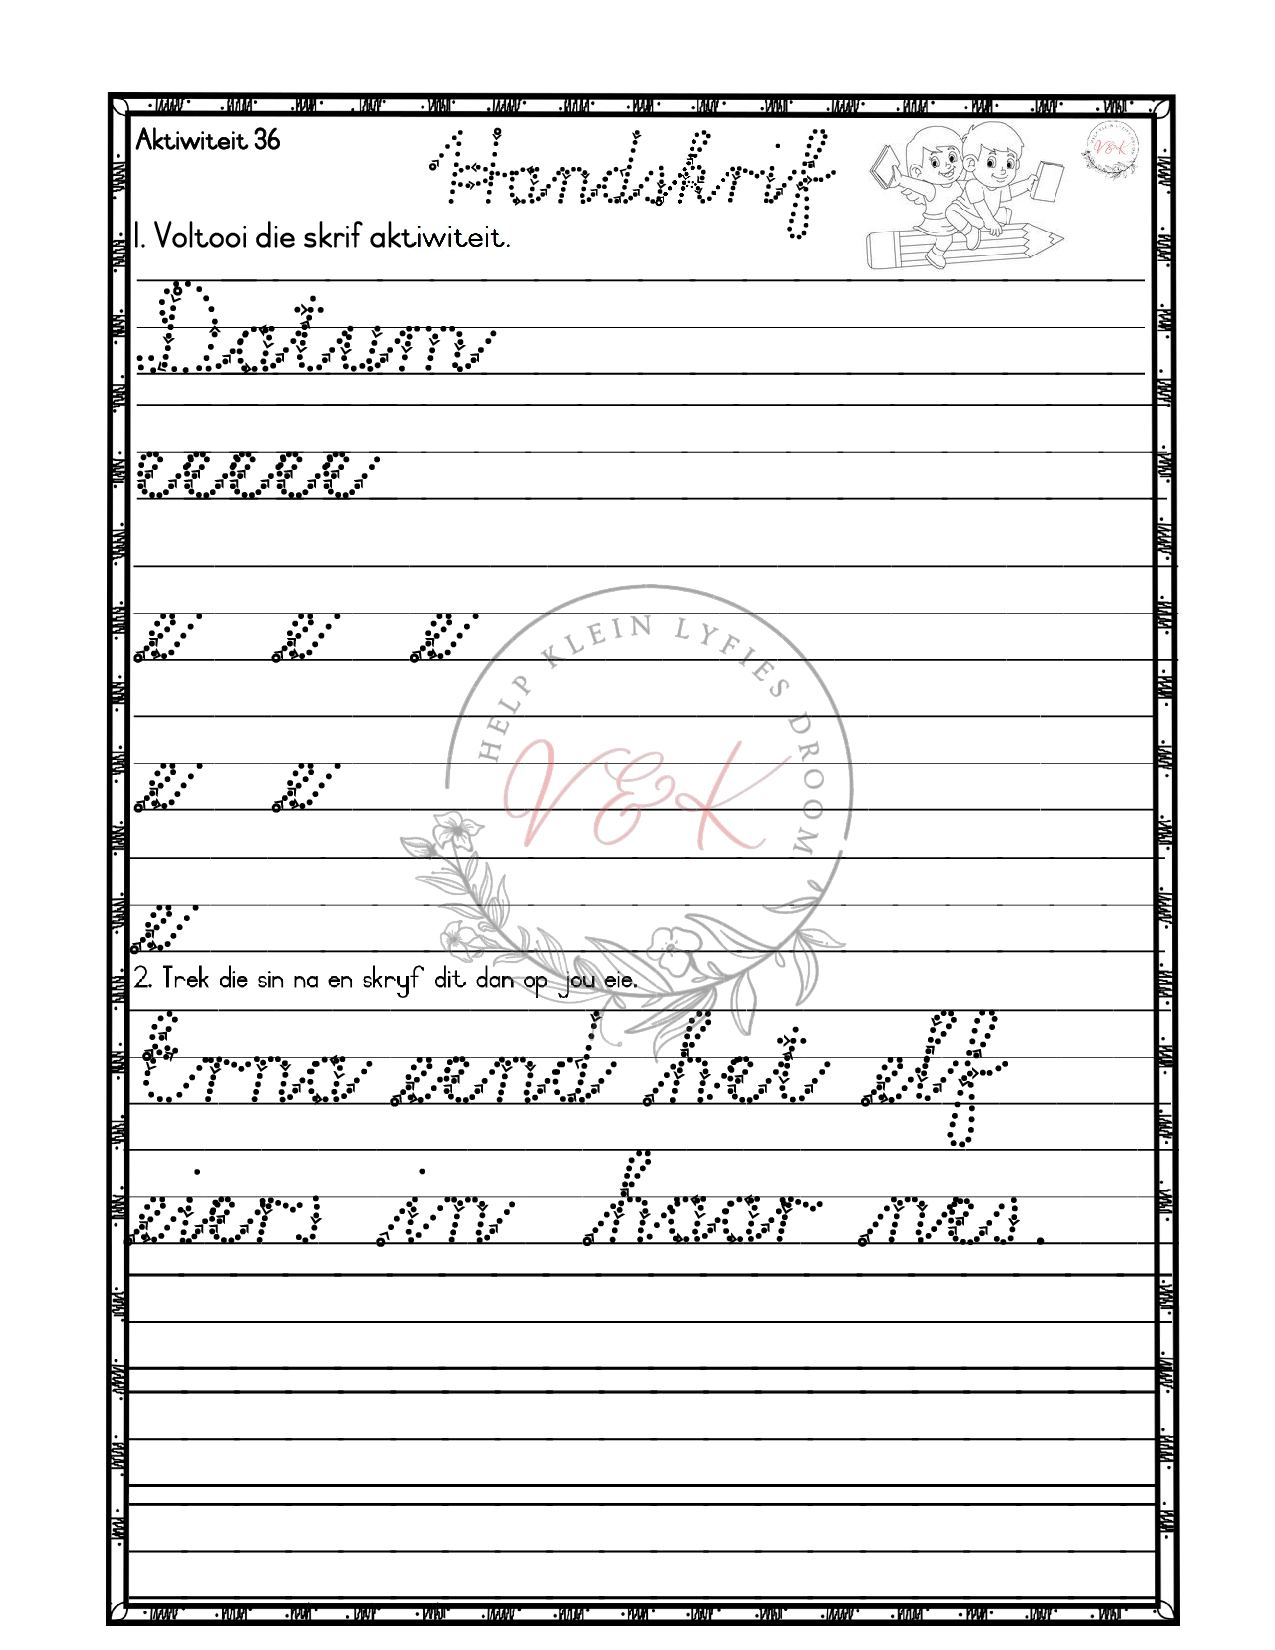 Aktiwiteit 36
Handskrif
V&K
1. Voltooi die skrif aktiwiteit.
Datum
eeeee
e e e
e e
e
HELP KLEIN LYFIES DROOM
V&K
2. Trek die sin na en skryf dit dan op jou eie.
Erna eend het elf
eiers in haar nes.